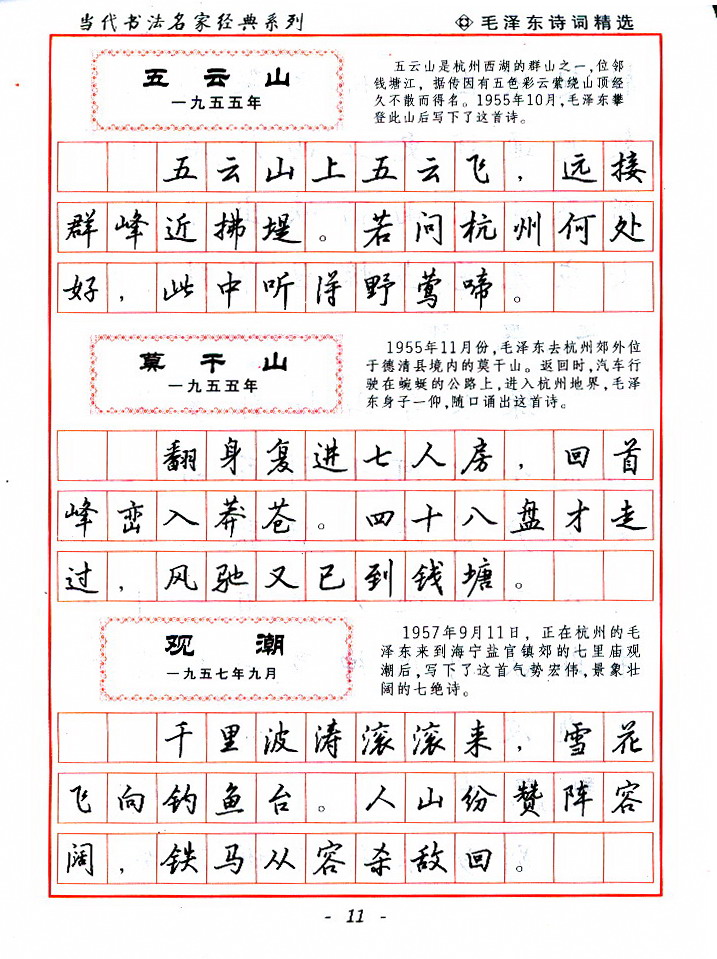 当代书法名家经典系列
毛泽东诗词精选
五云山
一九五五年
五云山是杭州西湖的群山之一,位邻
钱塘江，据传因有五色彩云萦绕山顶经
久不散而得名。1955年10月,毛泽东攀
登此山后写下了这首诗。
五云山上五云飞，远接
群峰近拂堤。若问杭州何处
好，此中听得野莺啼。
莫干山
一九五五年
1955年11月份,毛泽东去杭州郊外位
于德清县境内的莫干山。返回时,汽车行
驶在蜿蜒的公路上,进入杭州地界,毛泽
东身子一仰,随口诵出这首诗。
翻身复进七人房，回首
峰峦入莽苍。四十八盘才走
过，风驰又已到钱塘。
观潮
一九五七年九月
1957年9月11日，正在杭州的毛
泽东来到海宁盐官镇郊的七里庙观
潮后,写下了这首气势宏伟,景象壮
阔的七绝诗。
千里波涛滚滚来，雪花
飞向钓鱼台。人山份赞阵容
阔，铁马从容杀敌回。
- 11 -